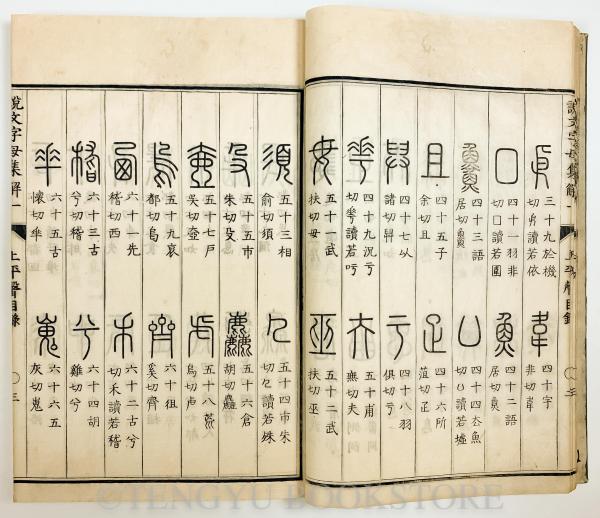 說文字母集解一 上平聲目錄 三
㐆 三十九於機
切㐆讀若依
韋 四十字
非切韋
囗 四十一羽非
切囗讀若圍
魚 四十二語
居切魚
𩺰 四十三語
居切𩺰
凵 四十四去魚
切凵讀若墟
且 四十五子
余切且
疋 四十六所
菹切疋
舁 四十七以
諸切舁
亏 四十八羽
俱切亏
𠌶 四十九況亏
切𠌶讀若吁
夫 五十甫
無切夫
毋 五十一武
扶切毋
巫 五十二武
扶切巫
須 五十三相
俞切須
𠘧 五十四市朱
切𠘧讀若殊
殳 五十五市
朱切殳
麤 五十六倉
胡切麤
壺 五十七戶
吳切壺
虍 五十八荒
烏切虍
烏 五十九哀
都切烏
齊 六十徂
奚切齊
西 六十一先
稽切西
禾 六十二古兮
切禾讀若稽
稽 六十三古
兮切稽
兮 六十四胡
雞切兮
六十五古
懷切
嵬 六十六五
灰切嵬
說文字母集解一 上平聲目錄 三
©TENGYU BOOKSTORE